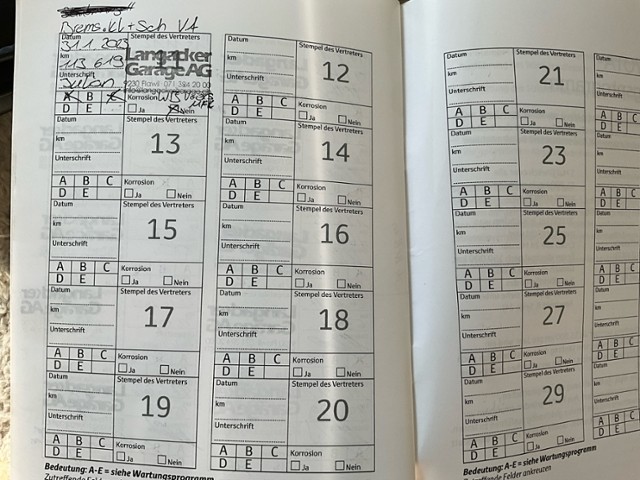 Brems.Kl + Sch VA
Datum
31.1.2023
km
113 619
Unterschrift
Stempel des Vertreters
Langacker
Garage AG
9230 Flawil 071 394 20 00
A B C
D E
Korrosion
Ja Nein
Datum
km
Unterschrift
Stempel des Vertreters
12
A B C
D E
Korrosion
Ja Nein
Datum
km
Unterschrift
Stempel des Vertreters
13
A B C
D E
Korrosion
Ja Nein
Datum
km
Unterschrift
Stempel des Vertreters
14
A B C
D E
Korrosion
Ja Nein
Datum
km
Unterschrift
Stempel des Vertreters
15
A B C
D E
Korrosion
Ja Nein
Datum
km
Unterschrift
Stempel des Vertreters
16
A B C
D E
Korrosion
Ja Nein
Datum
km
Unterschrift
Stempel des Vertreters
17
A B C
D E
Korrosion
Ja Nein
Datum
km
Unterschrift
Stempel des Vertreters
18
A B C
D E
Korrosion
Ja Nein
Datum
km
Unterschrift
Stempel des Vertreters
19
A B C
D E
Korrosion
Ja Nein
Datum
km
Unterschrift
Stempel des Vertreters
20
A B C
D E
Korrosion
Ja Nein
Bedeutung: A-E = siehe Wartungsprogramm
Zutreffende Felder
Datum
km
Unterschrift
Stempel des Vertreters
21
A B C
D E
Korrosion
Ja Nein
Datum
km
Unterschrift
Stempel des Vertreters
23
A B C
D E
Korrosion
Ja Nein
Datum
km
Unterschrift
Stempel des Vertreters
25
A B C
D E
Korrosion
Ja Nein
Datum
km
Unterschrift
Stempel des Vertreters
27
A B C
D E
Korrosion
Ja Nein
Datum
km
Unterschrift
Stempel des Vertreters
29
A B C
D E
Korrosion
Ja Nein
Bedeutung: A-E = siehe Wartungsprogramm
Zutreffende Felder ankreuzen